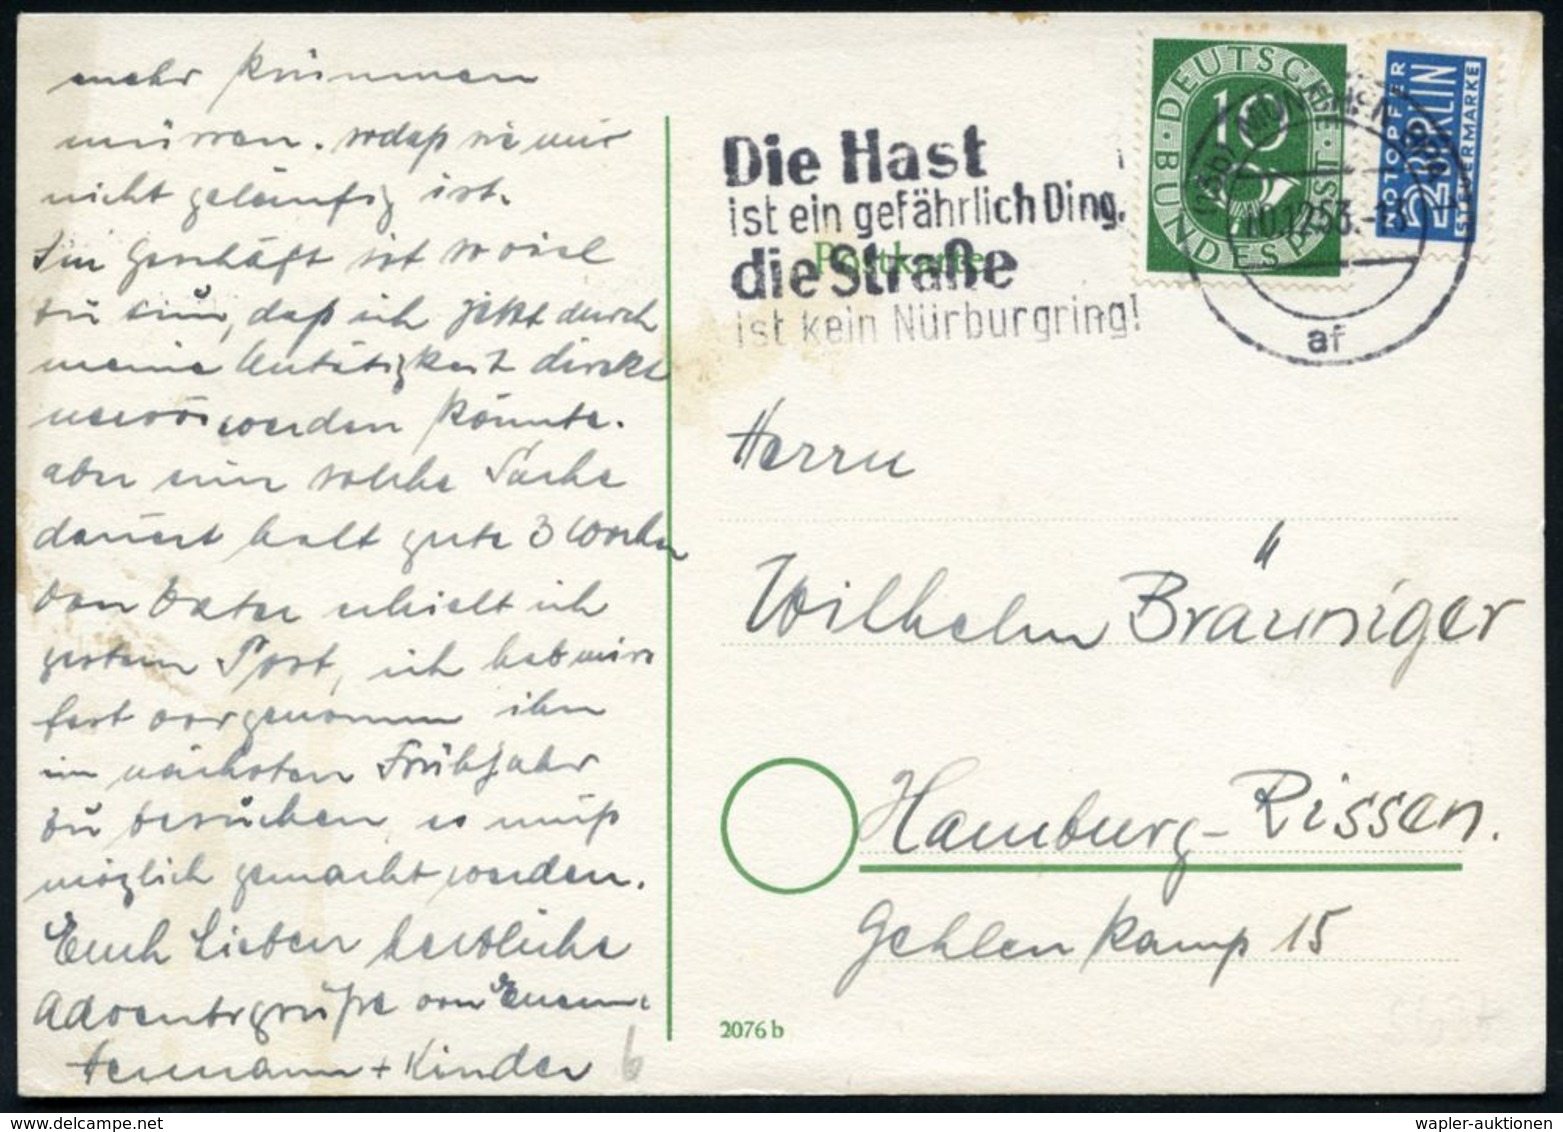 mehr kümmern
müssen. sodaß sie mir
nicht geläufig ist.
Ein Geschäft ist soviel
zu tun, daß ich jetzt durch
meine Untätigkeit direkt
nervös werden könnte.
aber eine solche Sache
dauert halt gute 3 Wochen
von Vater erhielt ich
gestern Post, ich hab mir
fest vorgenommen ihn
im nächsten Frühjahr
zu besuchen, es muß
möglich gemacht werden.
Euch Lieben herzliche
Adventsgrüße von Eurem
Hermann + Kinder
6
Die Hast
ist ein gefährlich Ding,
die Straße
ist kein Nürburgring!
Postkarte
DEUTSCHE BUNDESPOST
10
NOTOPFER
2 BERLIN
STEUERMARKE
MÜNCHEN
10.12.53.-13
af
Herrn
Wilhelm Bräuniger
Hamburg-Rissen.
Gehlenkamp 15
2076 b
wapler-auktionen